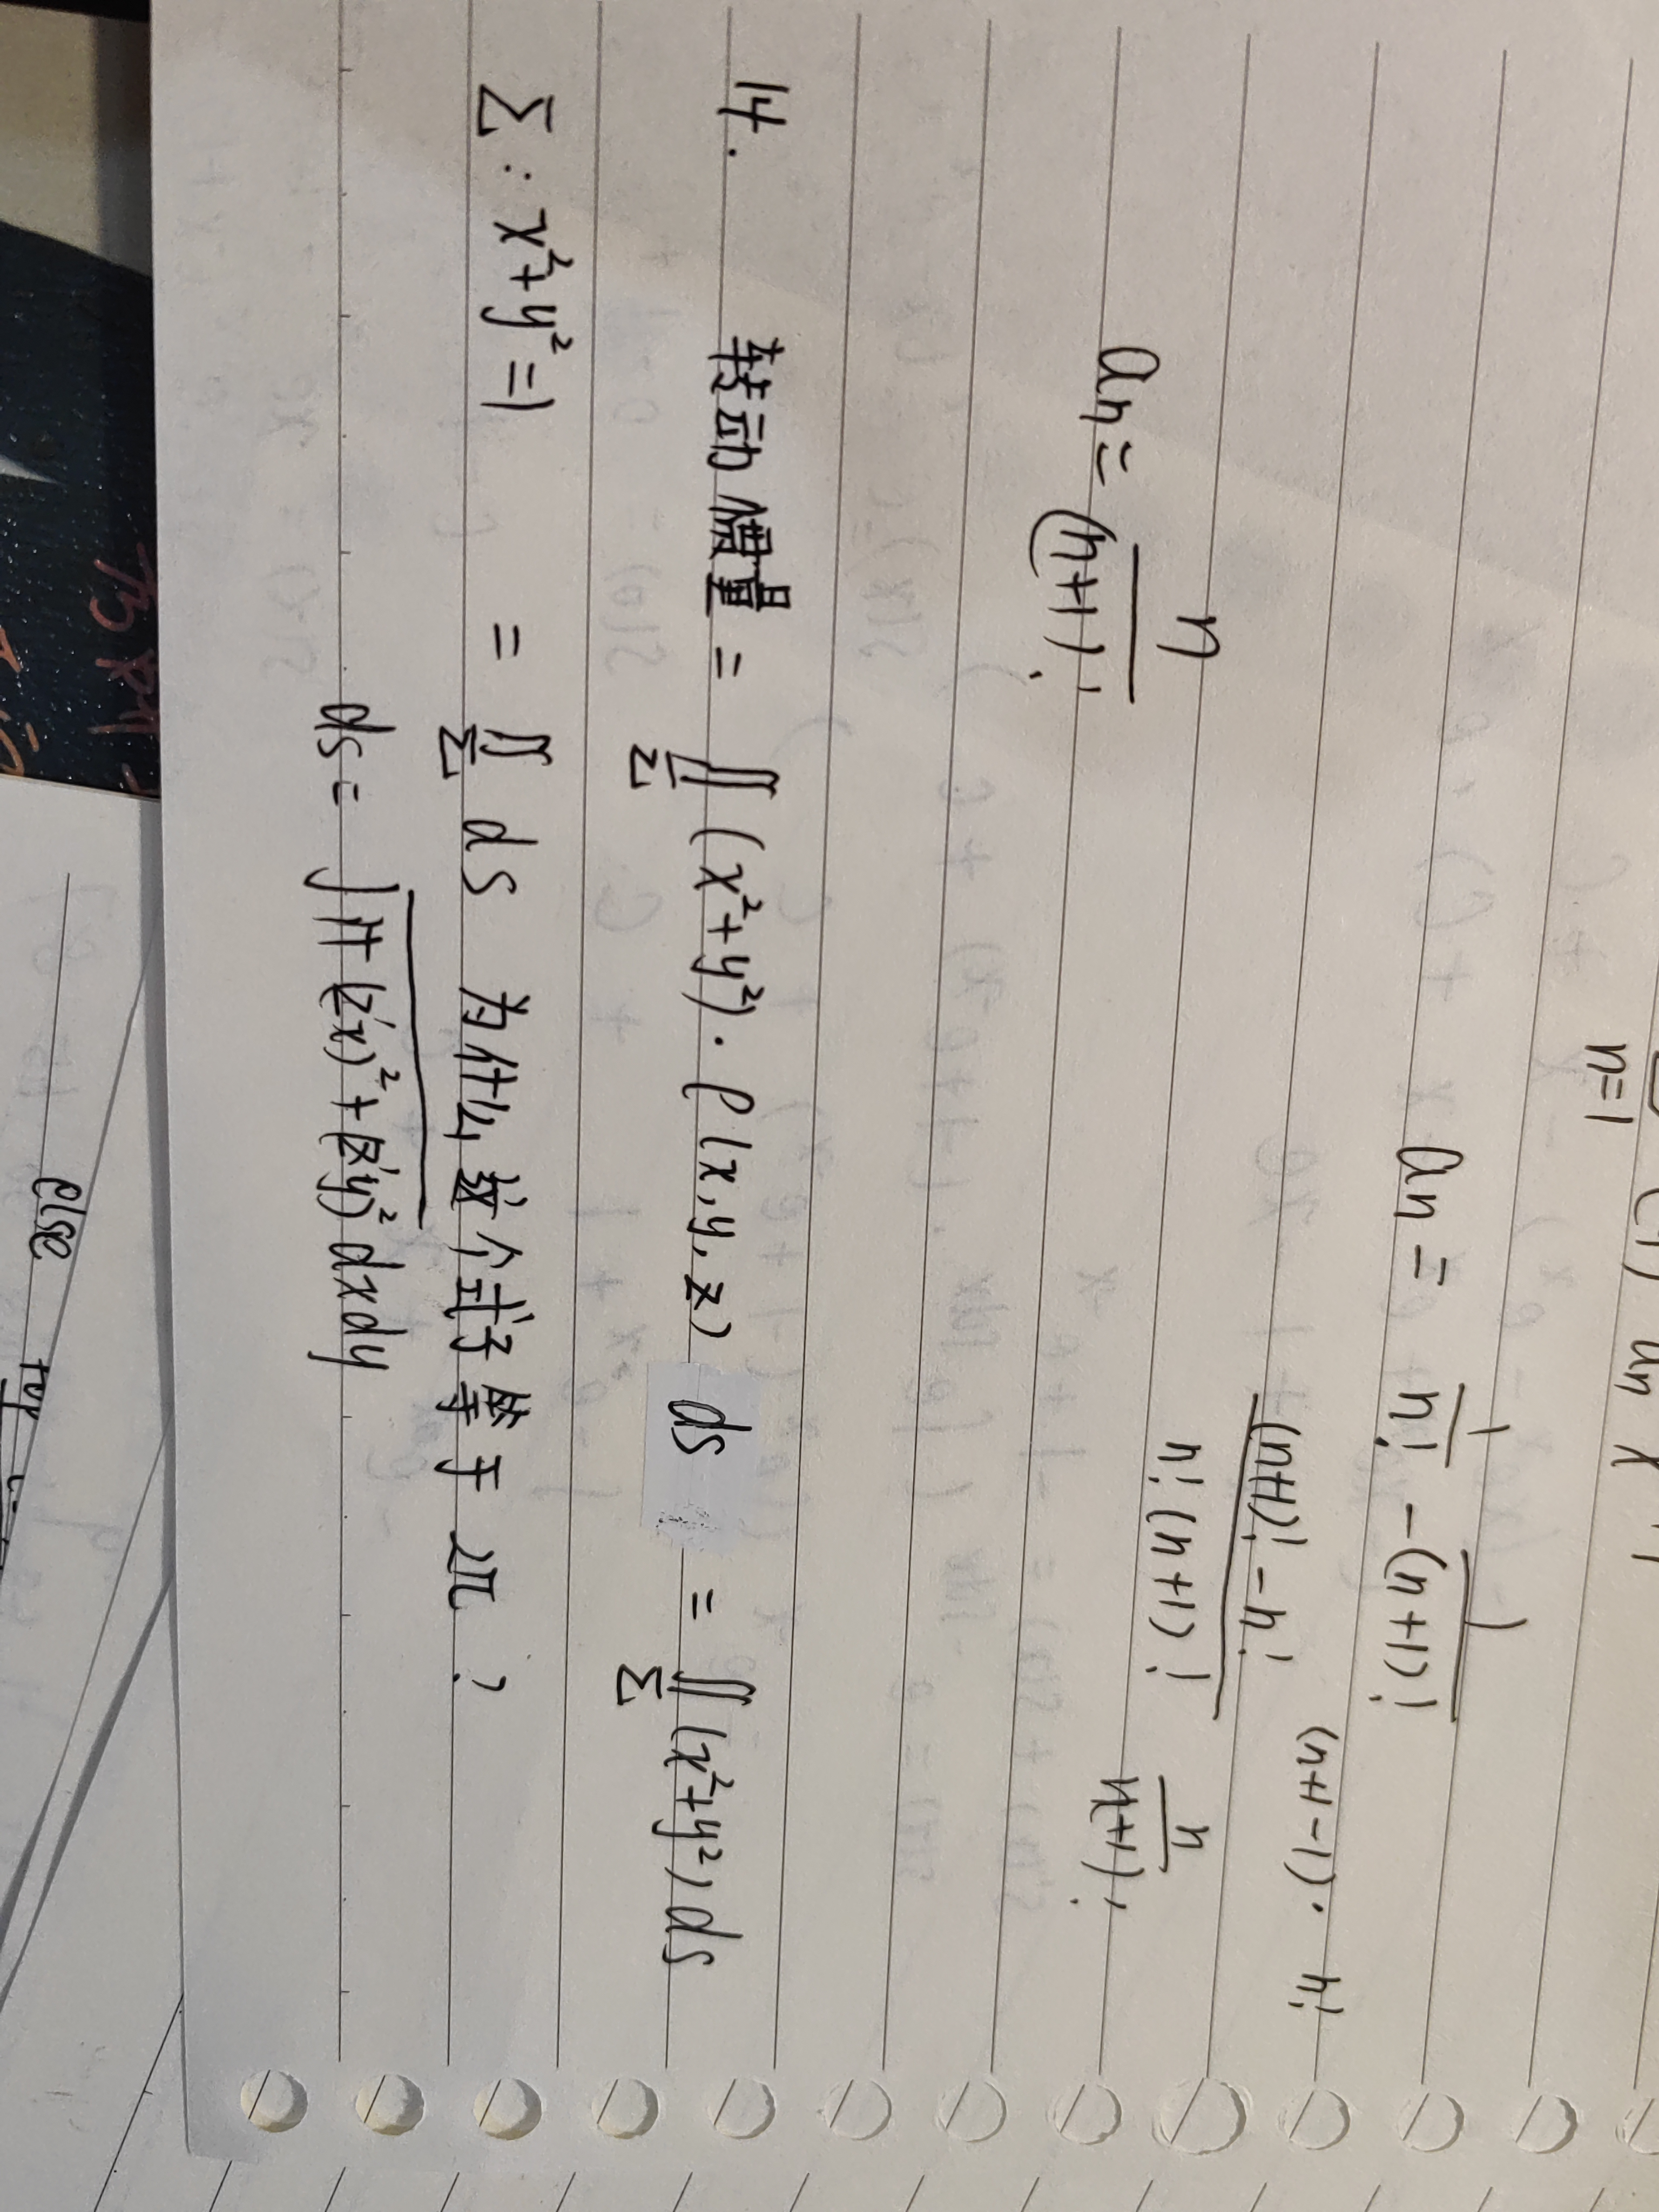 n=1
an = 1/n! - 1/(n+1)!
(n+1)! - n! / n! (n+1)!
(n+1-1)· n!
an = n/(n+1)!
n/(n+1)!
14. 转动惯量 = ∬Σ (x²+y²)· ρ(x,y,z) ds = ∬Σ (x²+y²) ds
Σ: x²+y²=1 = ∬Σ ds 为什么这个式子等于 2π ?
ds = √1+(z'x)²+(z'y)² dxdy
else